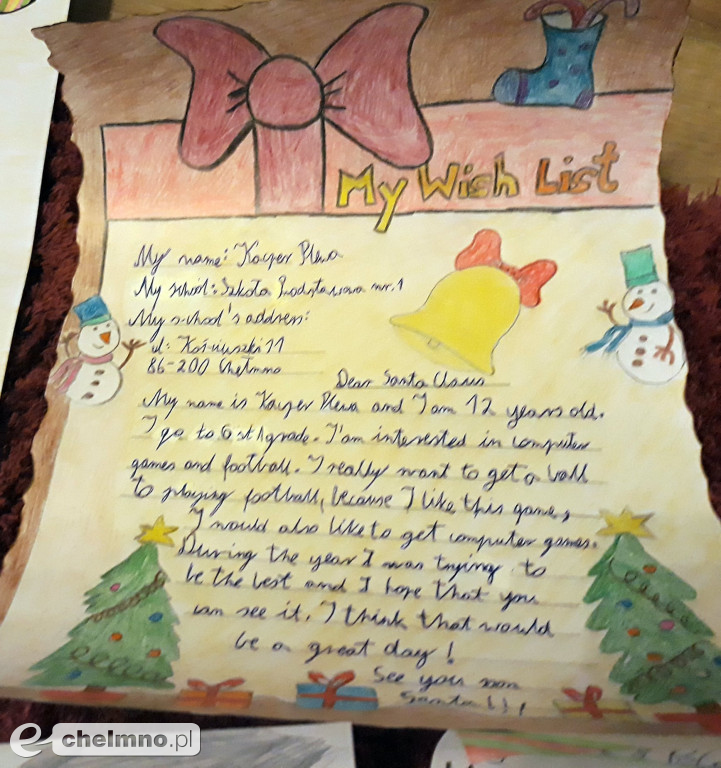 My Wish List
My name: Kacper Plewa
My school: Szkoła Podstawowa nr.1
My school's address:
ul: Kościuszki 11
86-200 Chełmno
Dear Santa Claus
My name is Kacper Plewa and I am 12 years old.
I go to 6 grade. I'am interested in computer
games and football. I really want to get a ball
to playing football, because I like this game,
I would also like to get computer games.
During the year I was trying to
be the best and I hope that you
can see it. I think that would
be a great day!
See you soon
Santa!!!
e-chelmno.pl